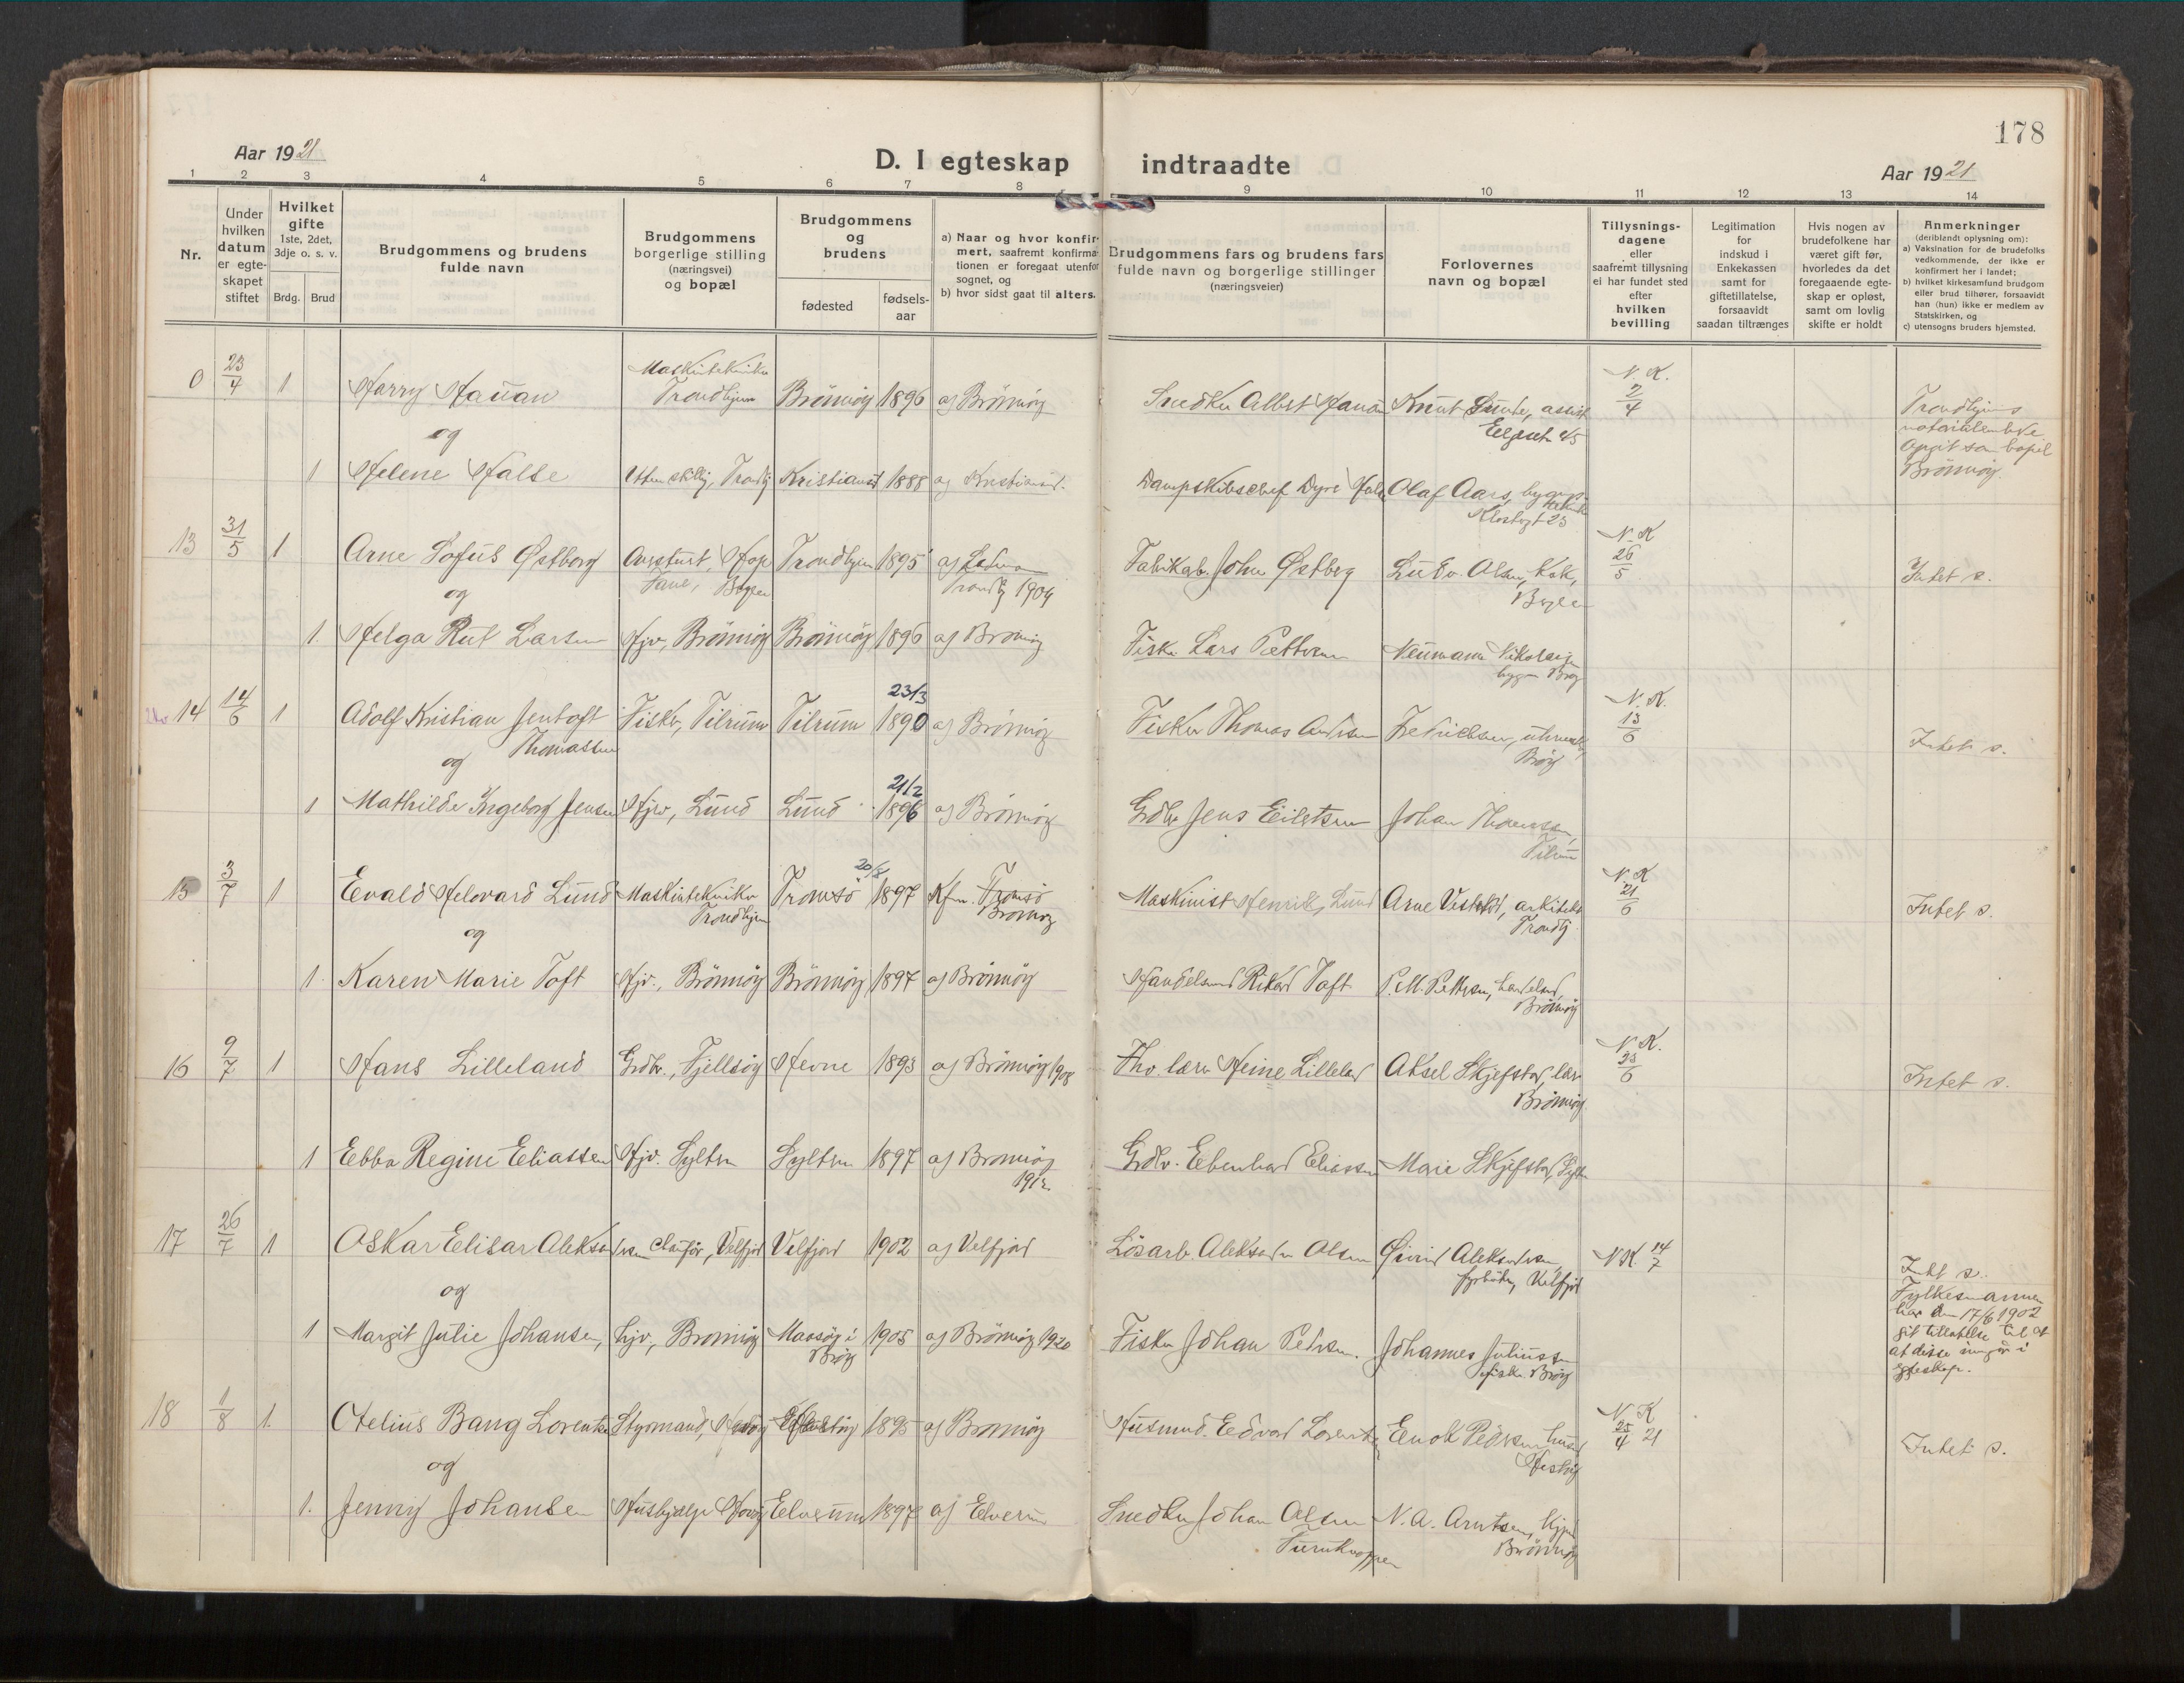 178
Aar 1921
D. I egteskap indtraadte
Aar 1921
1 2 3 4 5 6 7 8 9 10 11 12 13 14
Nr.
Under hvilken datum er egte-skapet stiftet
Hvilket gifte 1ste, 2det, 3dje o. s. v.
Brdg. Brud
Brudgommens og brudens fulde navn
Brudgommens borgerlige stilling (næringsvei) og bopæl
Brudgommens og brudens
fødested
fødsels-aar
a) Naar og hvor konfir-mert, saafremt konfirma-tionen er foregaat utenfor sognet, og
b) hvor sidst gaat til alters.
Brudgommens fars og brudens fars fulde navn og borgerlige stillinger (næringsveier)
Forlovernes navn og bopæl
Tillysnings-dagene eller saafremt tillysning ei har fundet sted efter hvilken bevilling
Legitimation for indskud i Enkekassen samt for giftetillatelse, forsaavidt saadan tiltrænges
Hvis nogen av brudefolkene har været gift før, hvorledes da det foregaaende egte-skap er opløst, samt om lovlig skifte er holdt
Anmerkninger (deriblandt oplysning om):
a) Vaksination for de brudefolks vedkommende, der ikke er konfirmert her i landet;
b) hvilket kirkesamfund brudgom eller brud tilhører, forsaavidt han (hun) ikke er medlem av Statskirken, og
c) utensogns bruders hjemsted.
0 23/4 1 Harry Hauan Maskintekniker Trondhjem Brönnöy 1896 af Brönnöy Snedker Knut Lunde, assist N. K. 2/4
og
1 Helene False Kristiansd 1888 af Kristiansd. Dampskibschef Dyre Olaf Aars
Brönnöy
13 31/5 1 Arne Sofus Østborg Trondhjem 1895 af Trondhj 1909 Fabrikarb. John Østberg Olsen, kok, N. K 26/5 Intet s.
og
1. Helga Rut Larsen Hjv, Brönnöy Brönnöy 1896 af Brönnöy Fisker Lars Pettersen Neumann Nikolaisen
14 14/6 1 Adolf Kristian Jentoft Thomassen Fisker, Tilrum Tilrum 23/3 1890 af Brönnöy Fisker Thomas Fredriksen, Bröy N. K. 13/6 Intet s.
og
1 Mathilde Ingeborg Jensen Hjv, Lund Lund 21/2 1896 af Brönnöy Grdbr Jens Eilertsen Johan Thomassen, Tilrum
15 3/7 1 Evald Helovard Lund Maskintekniker Trondhjem Tromsö 20/8 1897 Kfm. Tromsö Brönnöy Maskinist Henrik Lund Arne arkitekt Trondhj N. K 21/6 Intet s.
og
1. Karen Marie Toft Hjv., Brönnöy Brönnöy 1897 af Brönnöy Handelsmd Rikard Toft P. M. Pettersen, Brönnöy
16 9/7 1 Hans Lilleland Grdbr., Fjellsöy Hevne 1893 af Brönnöy 1908 Fhv. lærer Heine Lilleland Aksel Skjefstad, lær Brönnöy N. K. Intet s.
1 Ebba Regine Eliassen Hjv. Sylten Sylten 1897 af Brönnöy 1912 Grdbr. Ebenhard Eliassen Marie Skjefstad, Sylten
17 26/7 1 Oskar Elisar Aleksandersen Velfjord Velfjord 1902 af Velfjord Lösarb. Aleksander Olsen Øivind Aleksandersen, Velfjord N.K. 14/7
Intet s.
Fylkesmannen
har den 17/6 1902
git tillatelse til at
at disse inngår i
egteskap.
og
1 Margit Julie Johansen, hjv., Brönnöy Maasöy i Bröy 1905 af Brönnöy 1920 Fisker Johan Petersen. Johannes Juliussen fisker Bröy
18 1/8 1. Otelius Bang Lorentsen Styrmand, 1895 af Brönnöy Husmnd. Edvard Lorentsen Enok Pedersen N. K 25/4 21 Intet s.
og
1. Jenny Johansen Elverum 1897 af Elverum Snedker Johan Olsen N. A. Arntsen, Brönnöy